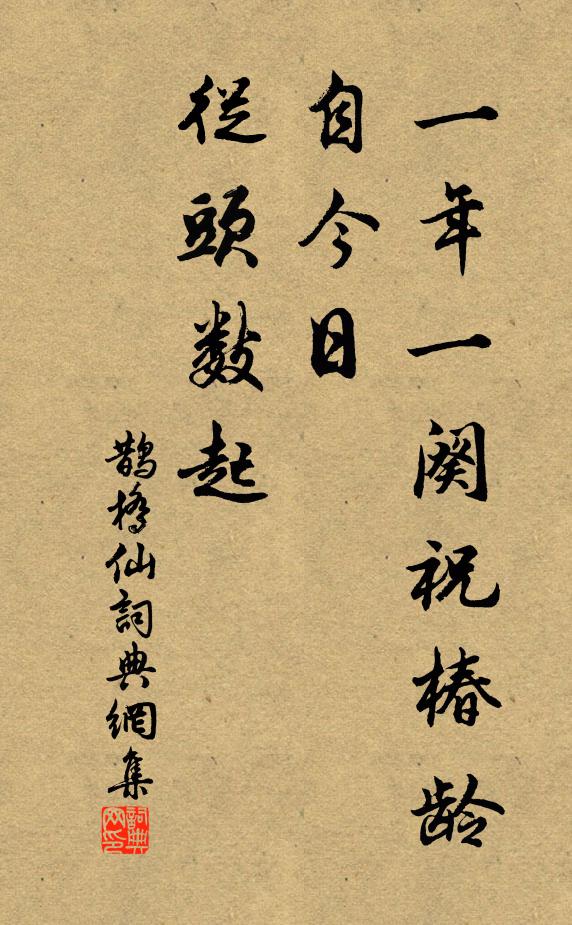 一年一阕祝椿龄
自今日
從頭数起
鵲橋仙詞典網集
詞典網印